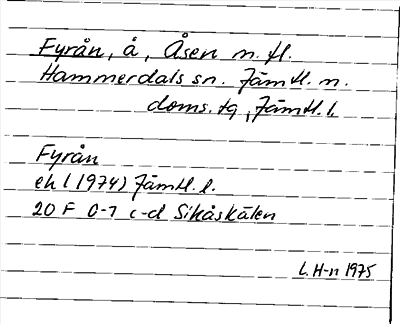 Fyrån, å, Åsen m. fl.
Hammerdals sn. Jämtl. n.
doms. tg, Jämtl. l.
Fyrån
ek l (1974) Jämtl. l.
20 F 0-1 c-d Sikåskälen
L. H-n 1975